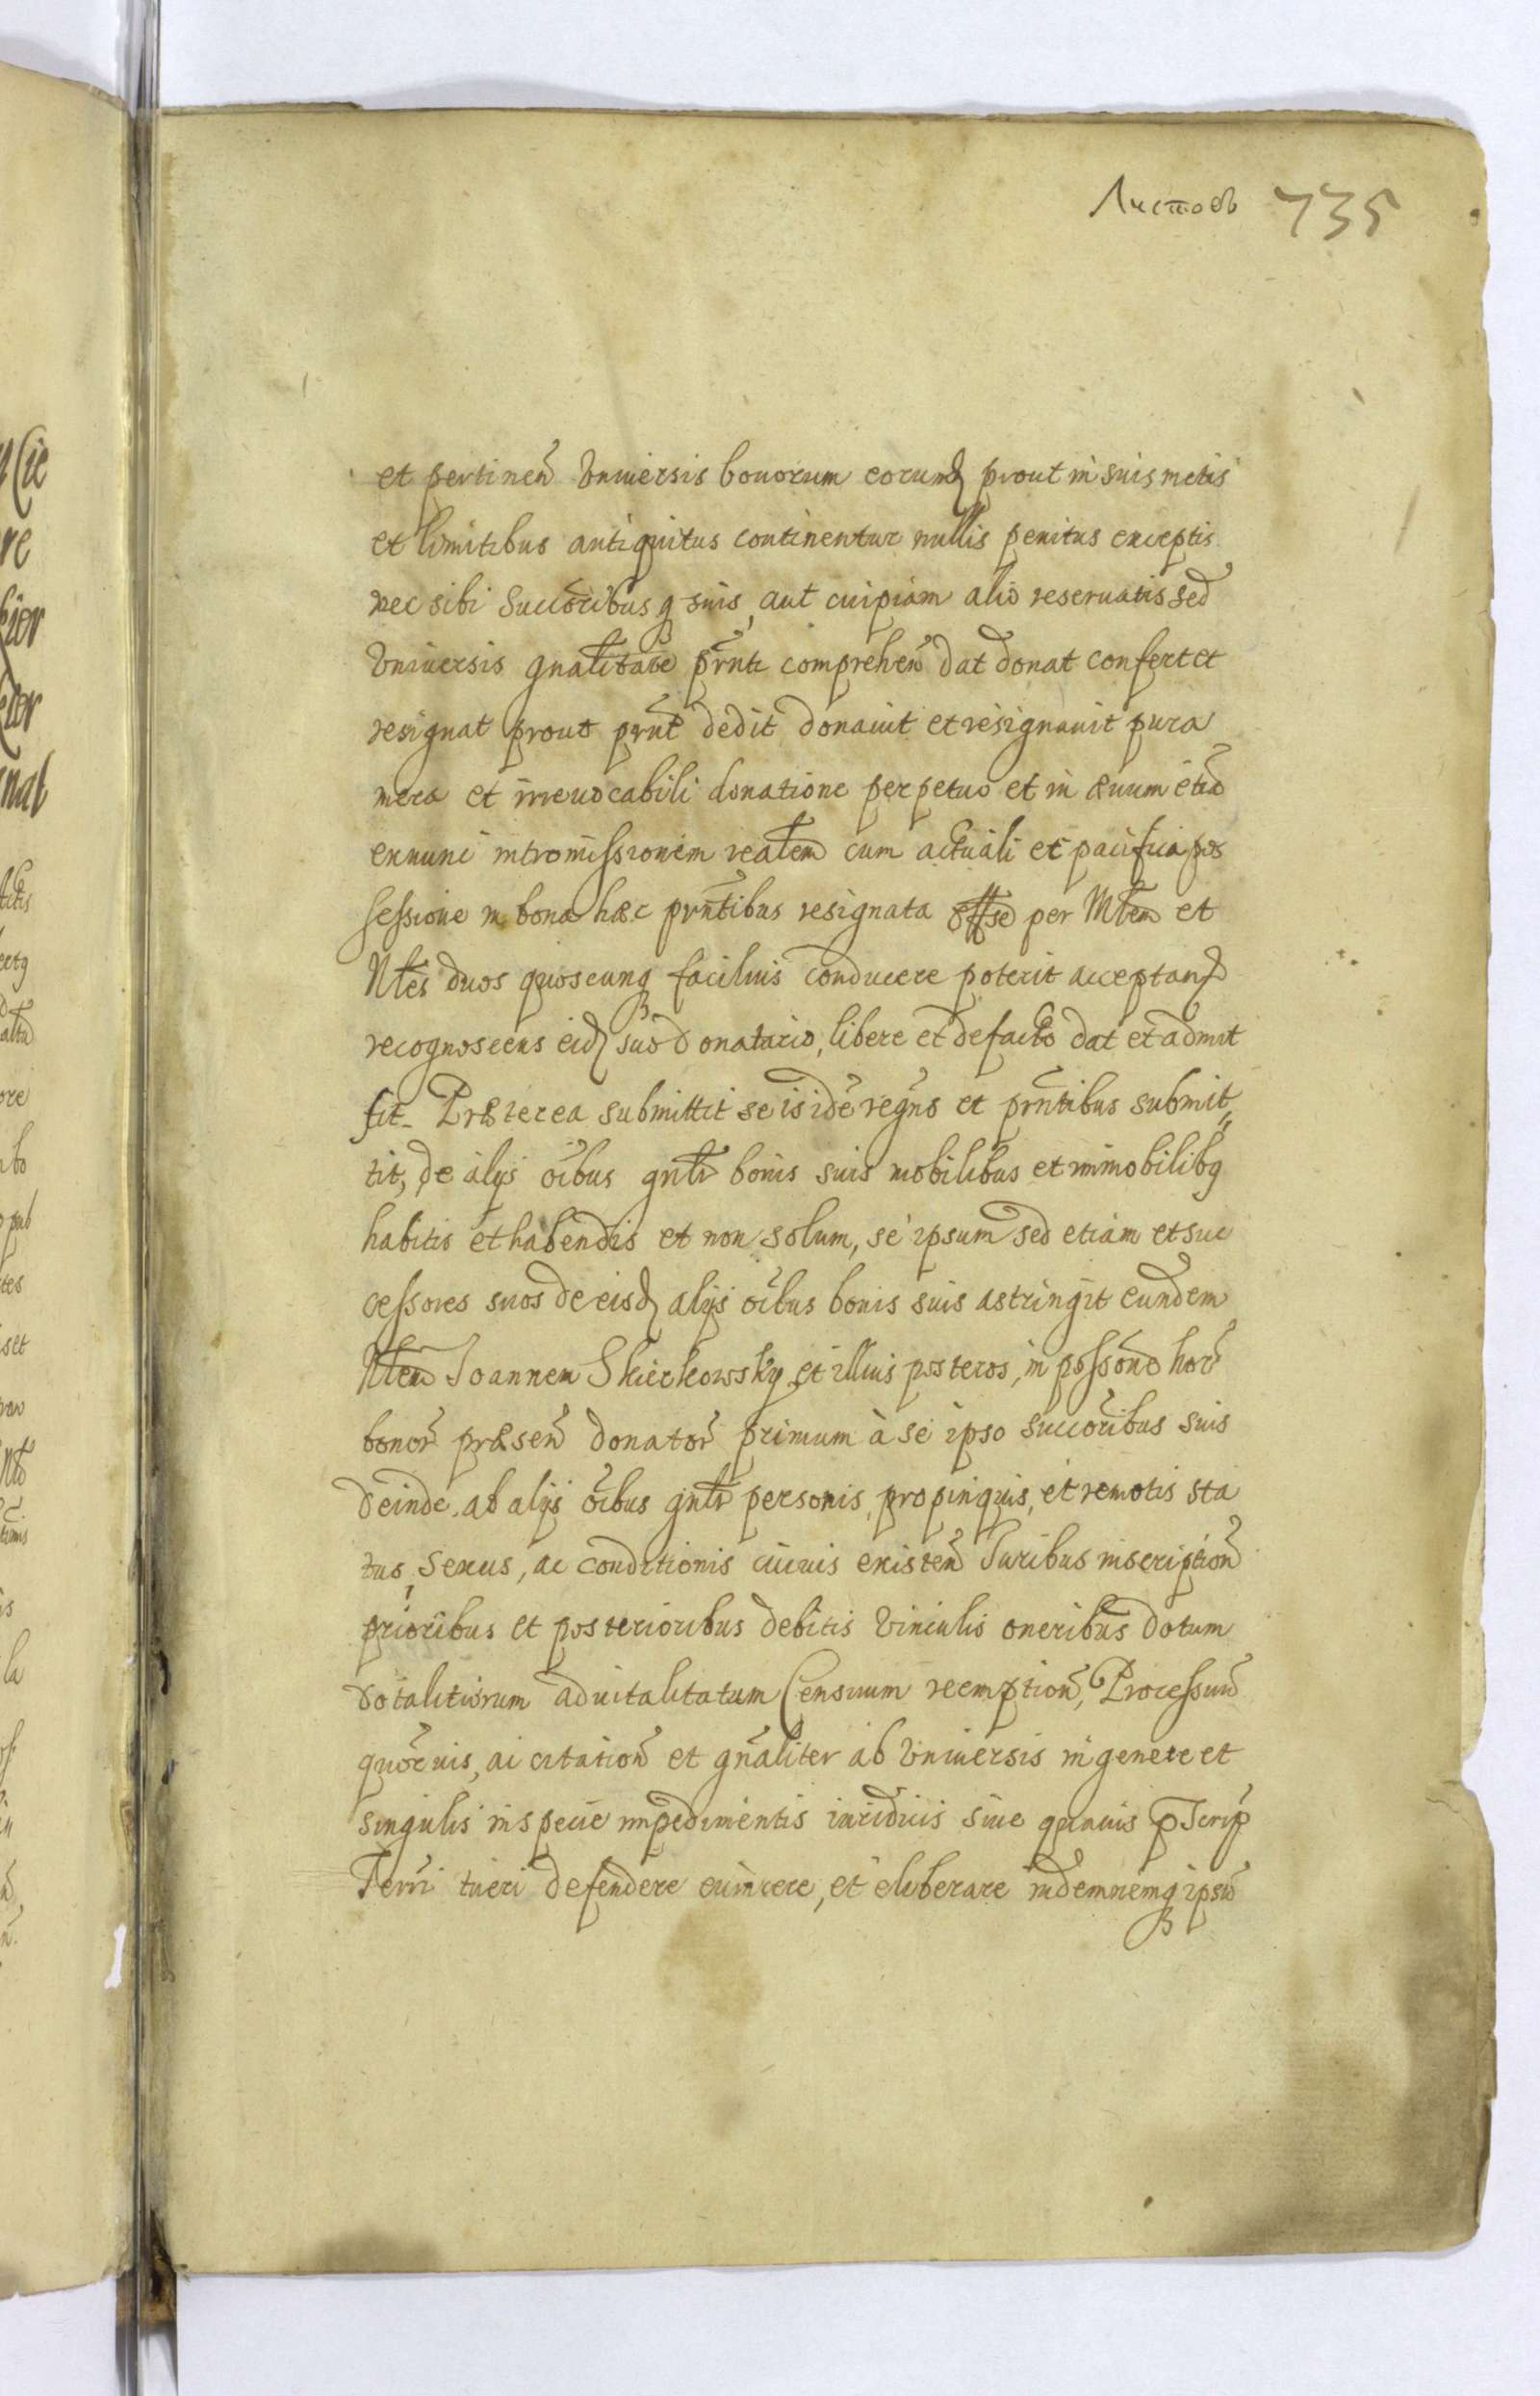 Листовъ 735
et pertinen Vniuersis bonorum eorund prout in suis metis
et limitibus antiquitus continentur nullis penitus exceptis
nec sibi Succoribusq suis, aut cuipiam alio reseruatis sed
Vniuersis gnalitate prnti comprehen dat donat confert et
resignat prout prnt dedit donauit et resignauit pura
mera et irreuocabili donatione perpetuo et in æuum etia
exnunc intromissionem realem cum actuali et pacifica pos
sessione in bona hæc prntibus resignata per Mtem et
Nles duos quoscunq facilius conducere poterit acceptand
recognoscens eid suo Donatario, libere et defacto dat et admit
tit. Præterea submittit se is ide regns et prntibus submit„
tit, de alijs oibus gnlr bonis suis mobilibus et immobilibq
habitis et habendis et non solum, se ipsum sed etiam et suc
cessores suos de eisd alijs oibus bonis suis astringit eundem
Nlem Joannem Skierkowsky et illius posteros, in possono hor
bonor præsen donator primum à se ipso succoribus suis
deinde ab alijs oibus gnlr personis, propinquis, et remotis sta
tus, Sexus, ac conditionis cuiuis existen Juribus inscription
prioribus et posterioribus debitis Vinculis oneribus dotum
dotalitiorum aduitalitatum Censuum reemption, Processum
quoruis, ac citation et gnaliter ab Vniuersis in genere et
singulis in specie impedimentis iuridicis siue quauis pscrip
Terri tueri defendere euincere, et eliberare indemnemq ipsu